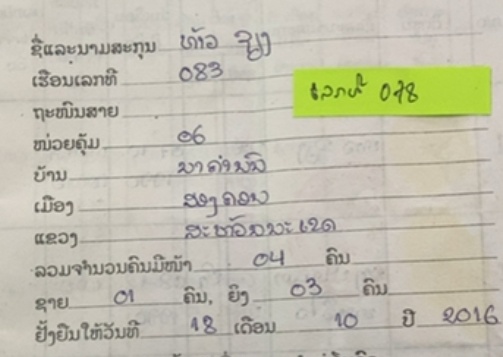 ຊື່ແລະນາມສະກຸນ ທ້າວ
ເຮືອນເລກທີ 083
ເລກທີ 078
ຖະໜົນສາຍ
ໜ່ວຍຄຸ້ມ 06
ບ້ານ
ເມືອງ ສອງຄອນ
ແຂວງ ສະຫວັນນະເຂດ
ລວມຈຳນວນຄົນມີໜ້າ 04 ຄົນ
ຊາຍ 01 ຄົນ, ຍິງ 03 ຄົນ
ຢັ້ງຢືນໃຫ້ວັນທີ 18 ເດືອນ 10 ປີ 2016